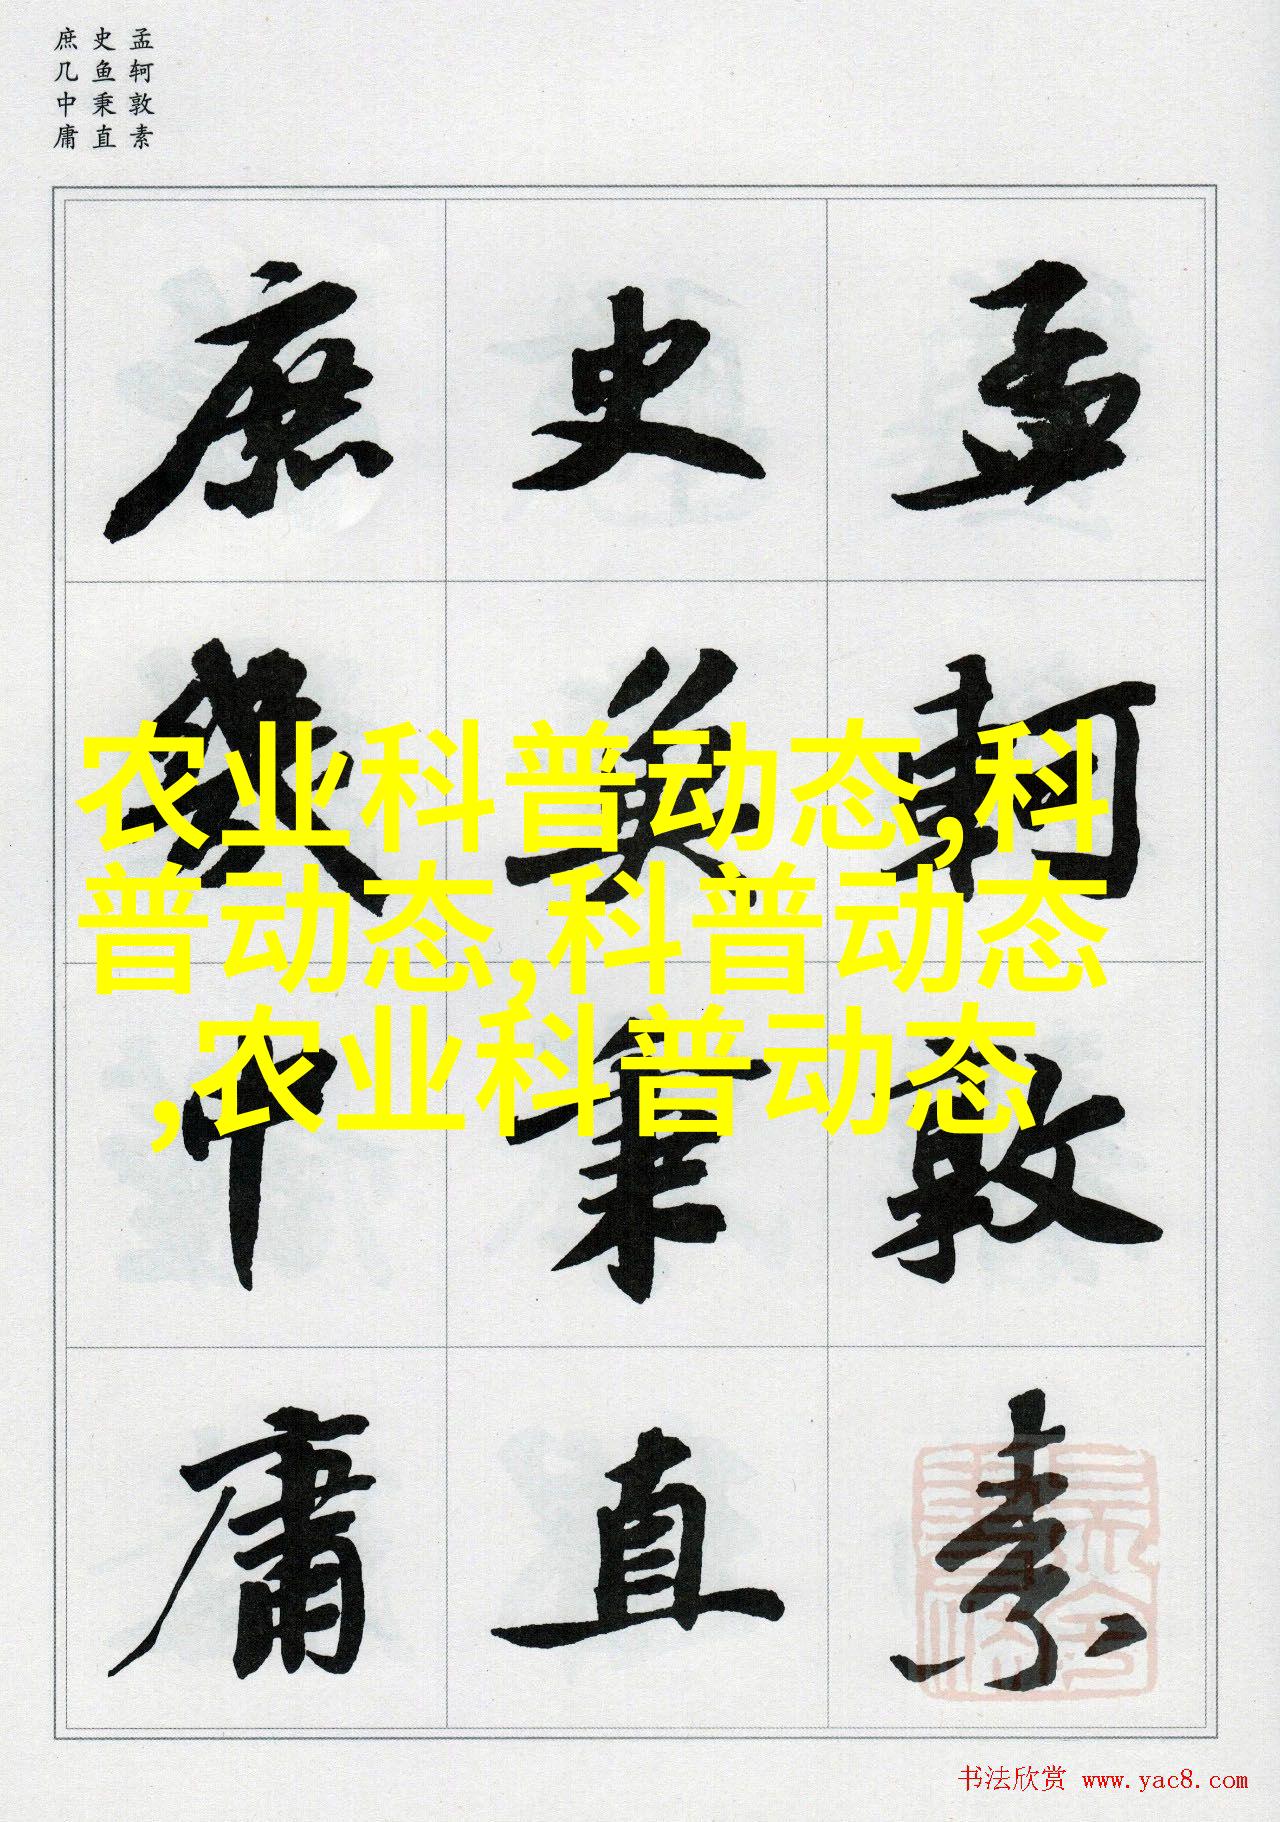 孟轲敦素
史鱼秉直
庶几中庸
孟軻敦素
史魚秉直
庶幾中庸
农业科普动态,科
普动态,科普动态
,农业科普动态
书法欣赏 www.yac8.com